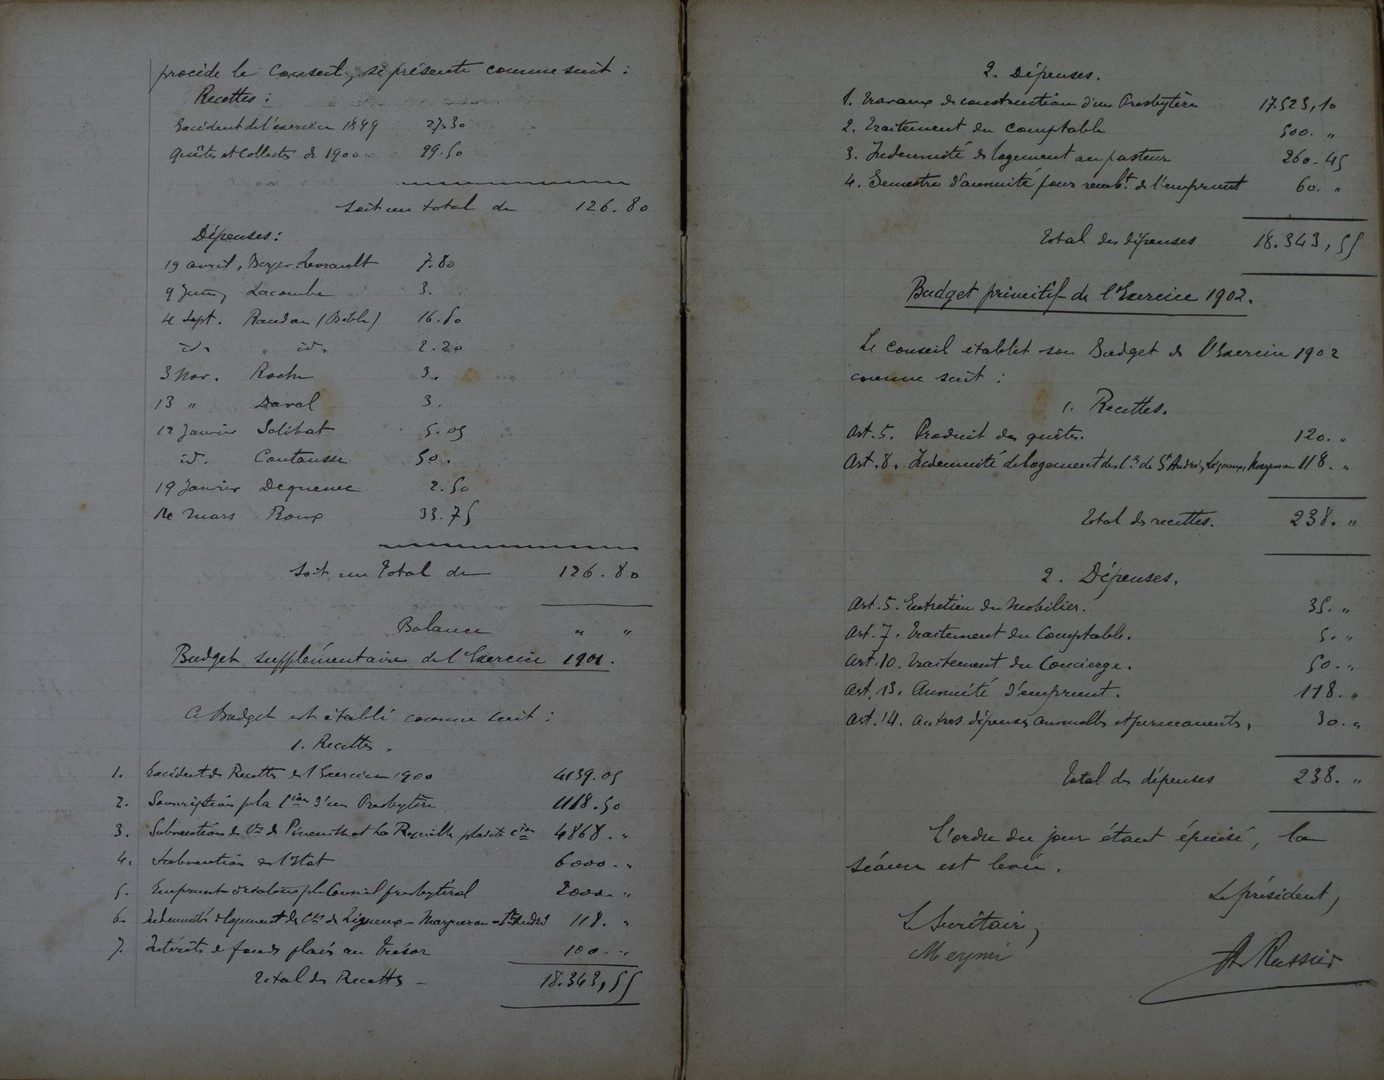 procède le Conseil, se présente comme suit :
Recettes :
Excédent de l'exercice 1899 27.30
Quêtes et Collectes de 1900 99.50
Soit un total de 126.80
Dépenses :
19 avril, Berger-Levrault 7.80
9 Juin, Lacombe 3.
4 Sept. Randon (Bible) 16.50
id. id. 2.20
3 Nov. Roche 3.
13 " Daval 3.
12 Janvier Solibat 5.05
id. Coutausse 50.
19 Janvier Dequenne 2.50
14 mars Roux 33.75
Soit un Total de 126.80
Balance " "
Budget supplémentaire de l'Exercice 1901.
Ce Budget est établi comme suit :
1. Recettes.
1. Excédent de Recettes de l'Exercice 1900 4139.05
2. Souscription p. la C.ion d'un Presbytère 1118.50
3. Subvention de C.nes de et La Roquille p. ladite C.ion 4868. "
4. Subvention de l'Etat 6000. "
5. Emprunt p. le Conseil presbytéral 2000. "
6. Indemnité de logement des C.nes de Ligueux - Margueron - St André 118. "
7. Intérêts de fonds placés au Trésor 100. "
Total des Recettes - 18.343,55
2. Dépenses.
1. Travaux de construction d'un Presbytère 17.523,10
2. Traitement du comptable 500. "
3. Indemnité de logement au pasteur 260.45
4. Semestre d'annuité pour remb.t de l'emprunt 60. "
Total des dépenses 18.343,55
Budget primitif de l'Exercice 1902.
Le conseil établit son Budget de l'Exercice 1902
comme suit :
1. Recettes.
Art. 5. Produit des quêtes. 120. "
Art. 8. Indemnité de logement des C.nes de St André, Ligueux, Margueron 118. "
Total des recettes. 238. "
2. Dépenses.
Art. 5. Entretien du Mobilier. 35. "
Art. 7. Traitement du Comptable. 5. "
Art. 10. Traitement du Concierge. 50. "
Art. 13. Annuité d'emprunt. 118. "
Art. 14. Autres dépenses annuelles et permanentes. 30. "
Total des dépenses 238. "
L'ordre du jour étant épuisé, la
séance est levée.
Le président,
Le Secrétaire,
Meymi
Russier